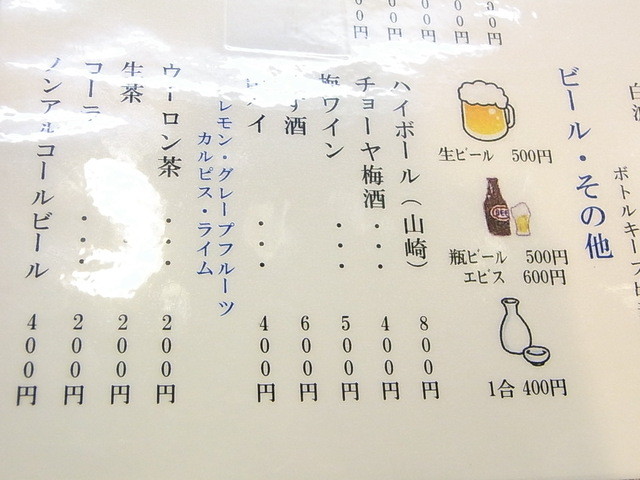 ビール・その他
生ビール 500円
瓶ビール 500円
エビス 600円
1合 400円
ハイボール(山崎) 800円
チョーヤ梅酒・・・ 400円
梅ワイン ・・・ 500円
酒 600円
イ ・・・ 400円
レモン・グレープフルーツ
カルピス・ライム
ウーロン茶 ・・・ 200円
生茶 200円
コーラ ・・・ 200円
ノンアルコールビール 400円